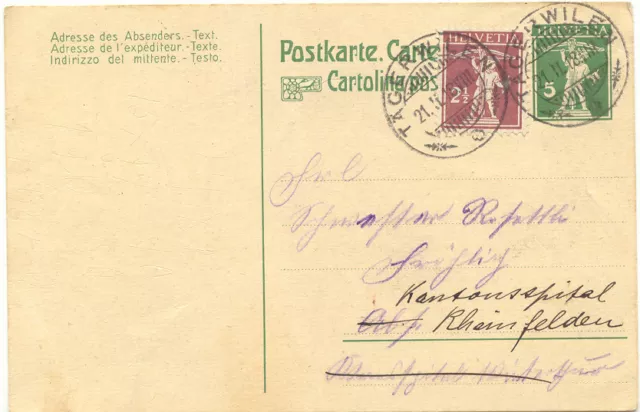 Adresse des Absenders.-Text.
Adresse de l'expéditeur.-Texte.
Indirizzo del mittente.-Testo.
Postkarte. Carte
Cartolina pos
HELVETIA
2½
HELVETIA
5
TÄGERWILEN
21. II. 18
TÄGERWILEN
21. II. 18
Frl
Schwester Rosettli
Fröhlich
Kantonsspital
Rheinfelden